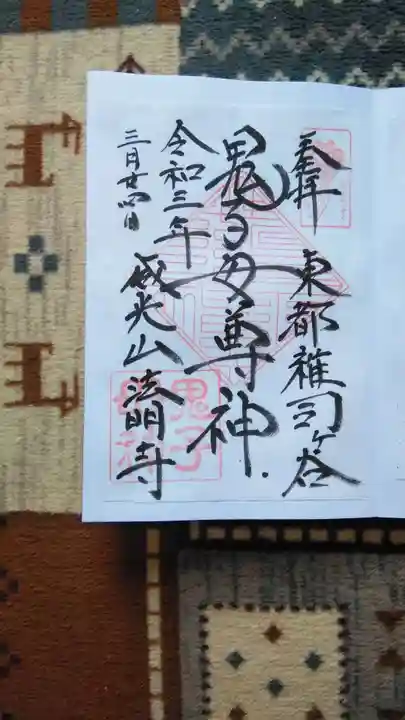 奉拝
東都雑司ヶ谷
鬼子母尊神
令和三年
三月廿四日
威光山法明寺
鬼子
母神